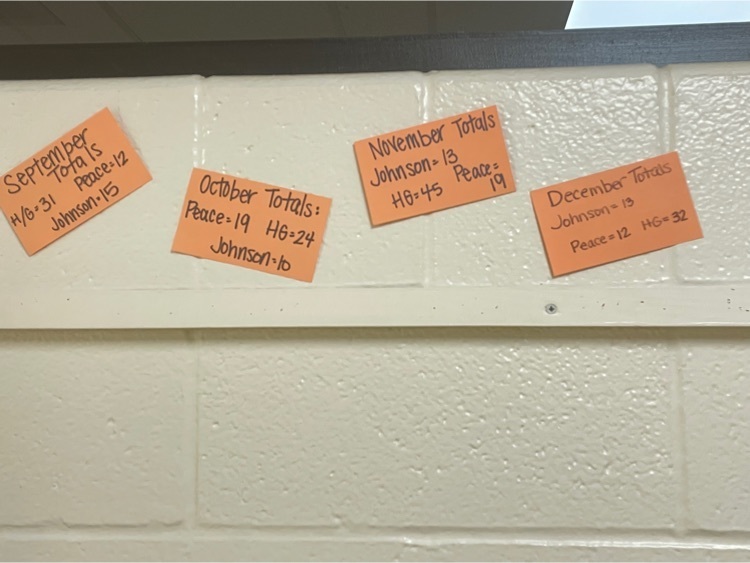 September
Totals
H/G=31 Peace=12
Johnson=15
October Totals:
Peace=19 HG=24
Johnson=10
November Totals
Johnson=13
HG=45 Peace=
19
December Totals
Johnson=13
Peace=12 HG=32